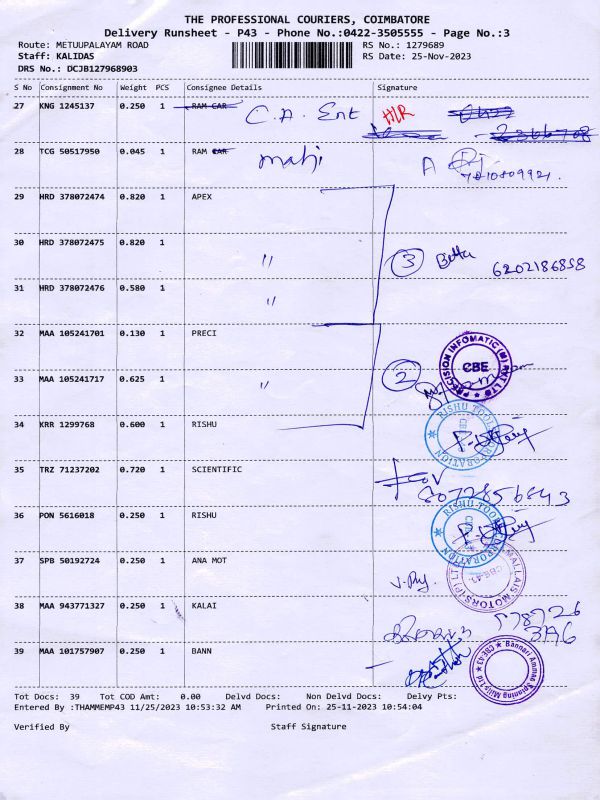 THE PROFESSIONAL COURIERS, COIMBATORE
Delivery Runsheet - P43 - Phone No.:0422-3505555 - Page No.:3
Route: METUUPALAYAM ROAD RS No.: 1279689
Staff: KALIDAS RS Date: 25-Nov-2023
DRS No.: DCJB127968903
S No Consignment No Weight PCS Consignee Details Signature
27 KNG 1245137 0.250 1 RAM CAR C.A. Ent H/R
28 TCG 50517950 0.045 1 RAM CAR mahi
29 HRD 378072474 0.820 1 APEX
30 HRD 378072475 0.820 1 " 3 6202186858
31 HRD 378072476 0.580 1 "
32 MAA 105241701 0.130 1 PRECI
PRECISION INFOMATIC (M) PVT LTD CBE
33 MAA 105241717 0.625 1 " 2
34 KRR 1299768 0.600 1 RISHU
RISHU TOOL CORPORATION
35 TRZ 71237202 0.720 1 SCIENTIFIC
8072856843
36 PON 5616018 0.250 1 RISHU
RISHU TOOL CORPORATION
37 SPB 50192724 0.250 1 ANA MOT
MALLAIS MOTORS (P) LTD
38 MAA 943771327 0.250 1 KALAI
39 MAA 101757907 0.250 1 BANN
Bannari Amman Spinning Mills Ltd CBE-43
Tot Docs: 39 Tot COD Amt: 0.00 Delvd Docs: Non Delvd Docs: Delvy Pts:
Entered By :THAMMEMP43 11/25/2023 10:53:32 AM Printed On: 25-11-2023 10:54:04
Verified By Staff Signature